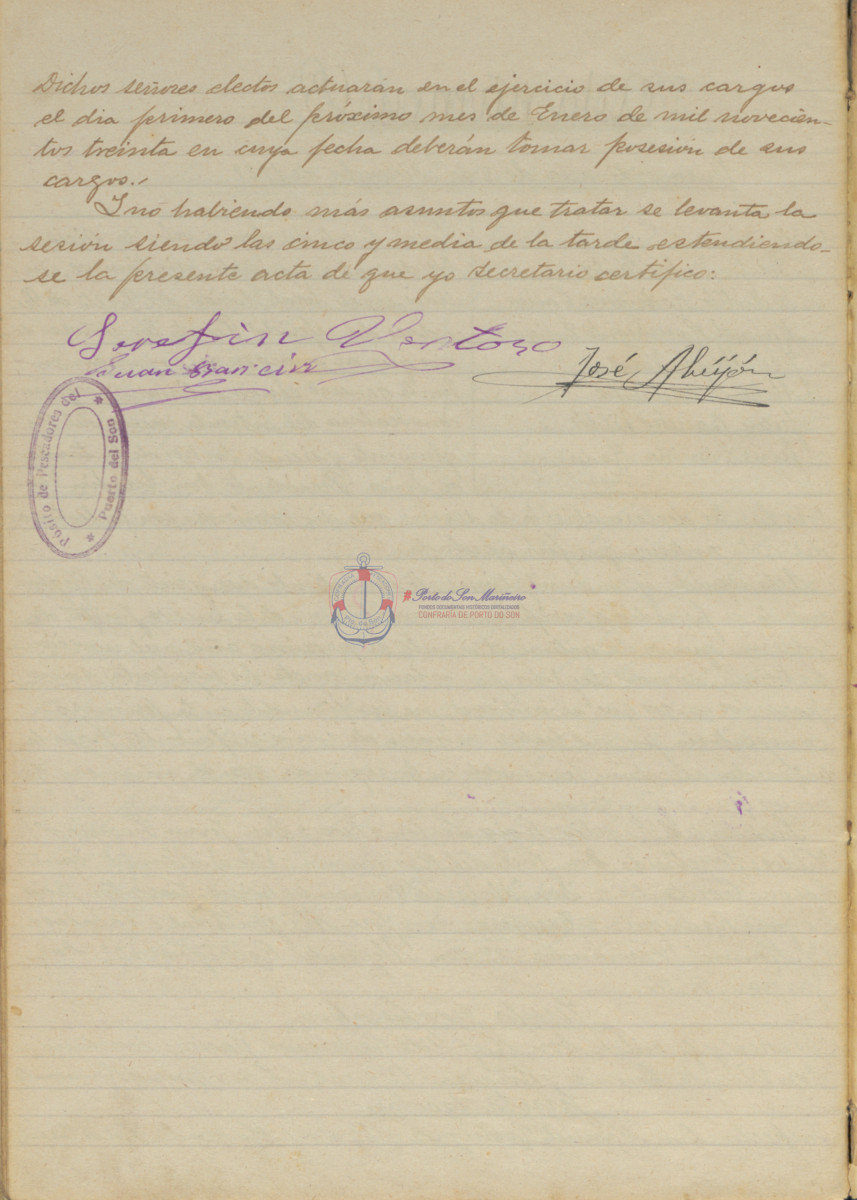 Dichos señores electos actuarán en el ejercicio de sus cargos
el dia primero del próximo mes de Enero de mil novecien-
tos treinta en cuya fecha deberán tomar posesión de sus
cargos.-
Y no habiendo más asuntos que tratar se levanta la
sesión siendo las cinco y media de la tarde estendiendo-
se la presente acta de que yo secretario certifico:
Serafin Ventoso
Juan
José Abeijón
Posito de Pescadores del
* Puerto del Son *
#PortodoSonMariñeiro
FONDOS DOCUMENTAIS HISTÓRICOS DIXITALIZADOS
CONFRARÍA DE PORTO DO SON